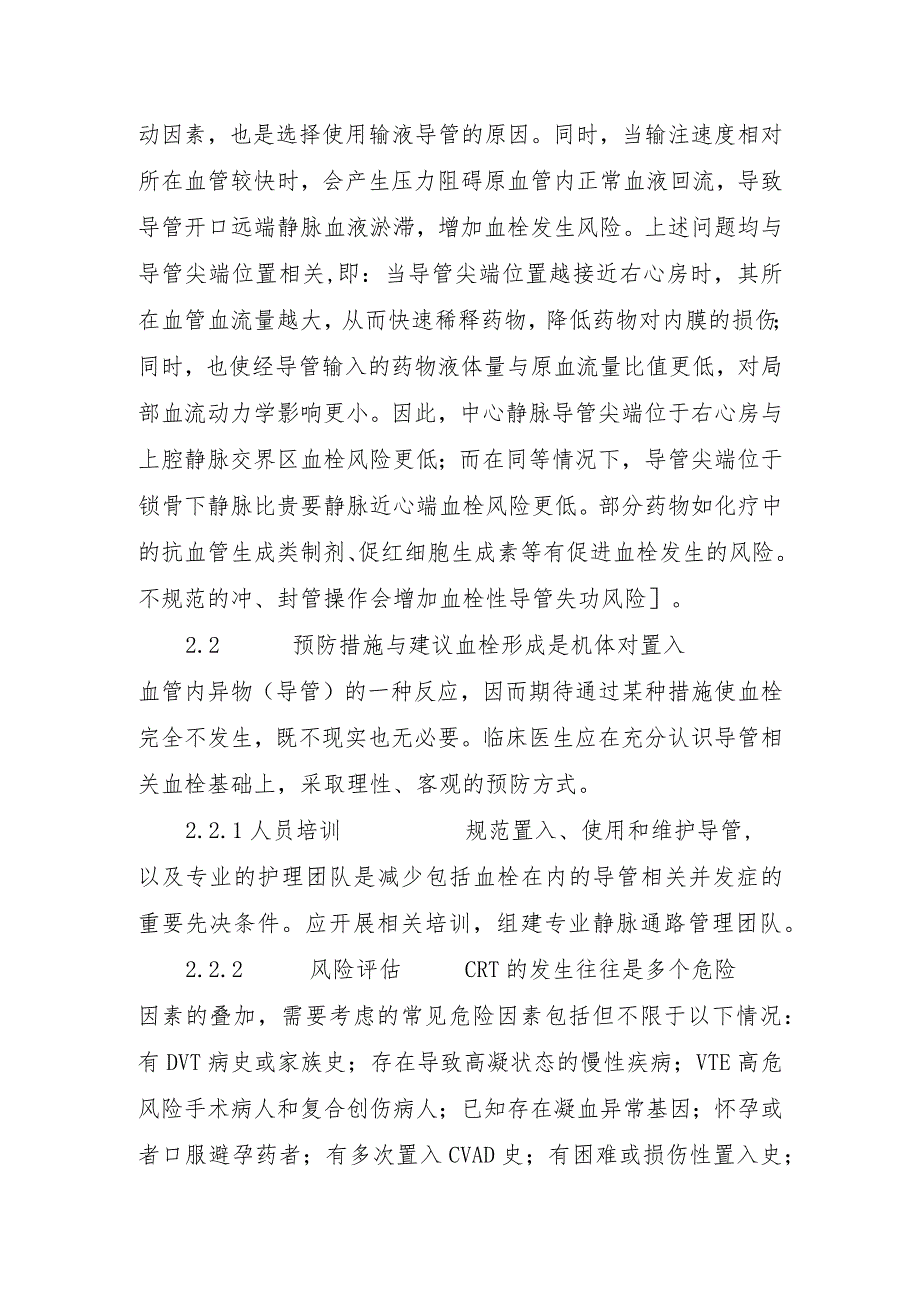 动因素，也是选择使用输液导管的原因。同时，当输注速度相对
所在血管较快时，会产生压力阻碍原血管内正常血液回流，导致
导管开口远端静脉血液淤滞，增加血栓发生风险。上述问题均与
导管尖端位置相关,即：当导管尖端位置越接近右心房时，其所
在血管血流量越大，从而快速稀释药物，降低药物对内膜的损伤；
同时，也使经导管输入的药物液体量与原血流量比值更低，对局
部血流动力学影响更小。因此，中心静脉导管尖端位于右心房与
上腔静脉交界区血栓风险更低；而在同等情况下，导管尖端位于
锁骨下静脉比贵要静脉近心端血栓风险更低。部分药物如化疗中
的抗血管生成类制剂、促红细胞生成素等有促进血栓发生的风险。
不规范的冲、封管操作会增加血栓性导管失功风险］。
2.2 预防措施与建议血栓形成是机体对置入
血管内异物（导管）的一种反应，因而期待通过某种措施使血栓
完全不发生，既不现实也无必要。临床医生应在充分认识导管相
关血栓基础上，采取理性、客观的预防方式。
2.2.1人员培训 规范置入、使用和维护导管，
以及专业的护理团队是减少包括血栓在内的导管相关并发症的
重要先决条件。应开展相关培训，组建专业静脉通路管理团队。
2.2.2 风险评估 CRT的发生往往是多个危险
因素的叠加，需要考虑的常见危险因素包括但不限于以下情况：
有DVT病史或家族史；存在导致高凝状态的慢性疾病；VTE高危
风险手术病人和复合创伤病人；已知存在凝血异常基因；怀孕或
者口服避孕药者；有多次置入CVAD史；有困难或损伤性置入史；